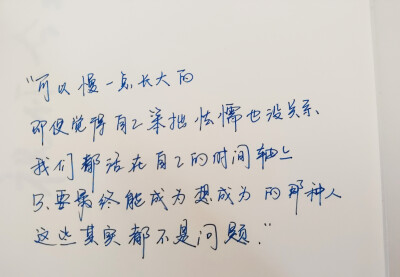 “可以慢一点长大的
即便觉得自己笨拙怯懦也没关系
我们都活在自己的时间轴上
只要最终能成为想成为的那种人
这些其实都不是问题。”